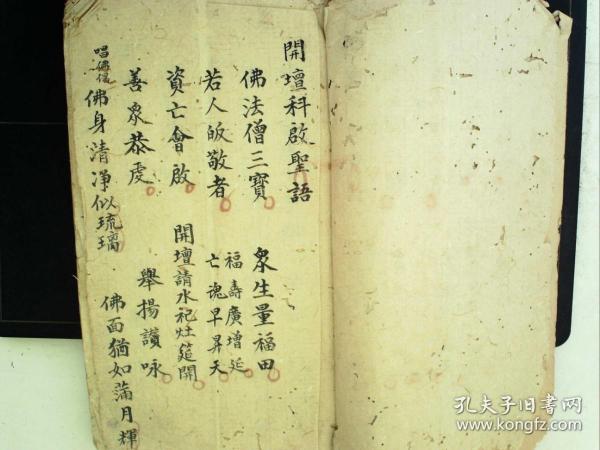 開壇科啟聖語
佛法僧三寳 衆生量福田
若人皈敬者 福壽廣增延
亡魂早昇天
資亡會啟 開壇請水祀灶筵開
善衆恭虔 舉揚讚咏
唱佛偈 佛身清淨似琉璃 佛面猶如蒲月輝
孔夫子旧书网
www.kongfz.com